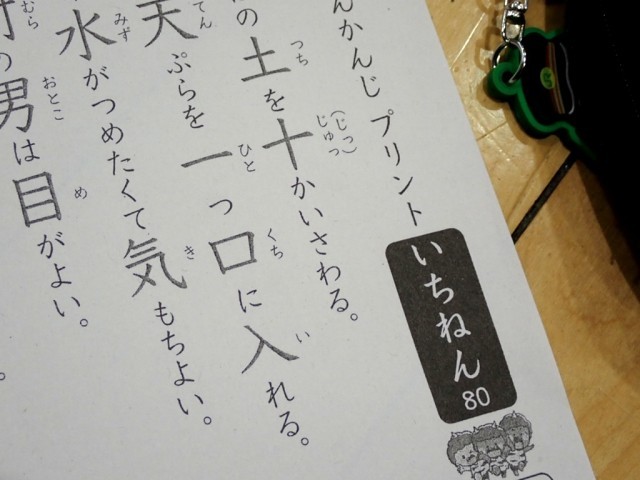 んかんじ プリント いちねん 80
つち (じっ) じゅっ
の土を十かいさわる。
てん ひと くち い
天ぷらを一つ口に入れる。
みず き
水がつめたくて気もちよい。
むら おとこ め
の男は目がよい。